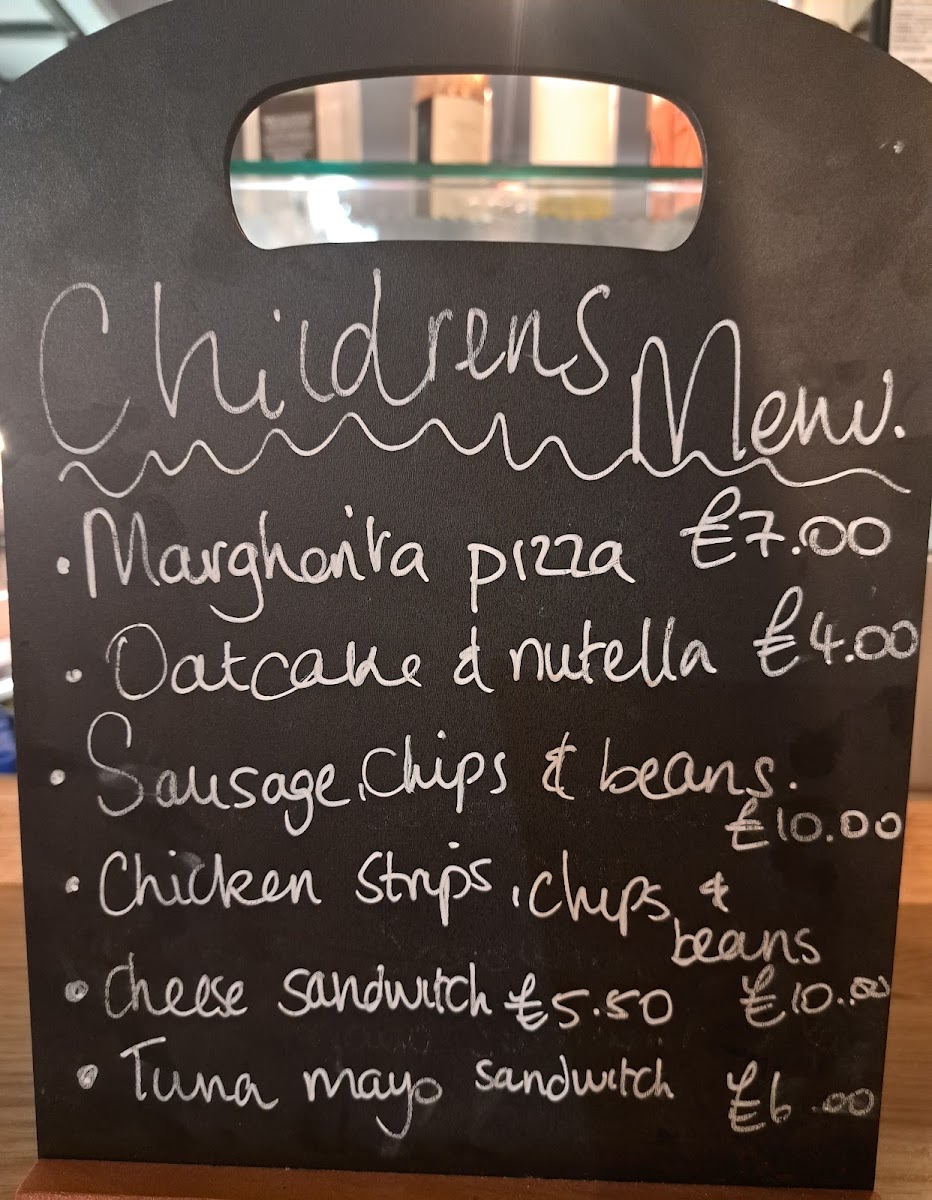 Childrens Menu.
· Margherita pizza £7.00
· Oatcake & nutella £4.00
· Sausage, Chips & beans.
£10.00
· Chicken strips, chips &
beans
· Cheese sandwitch £5.50 £10.00
· Tuna mayo sandwitch £6.00